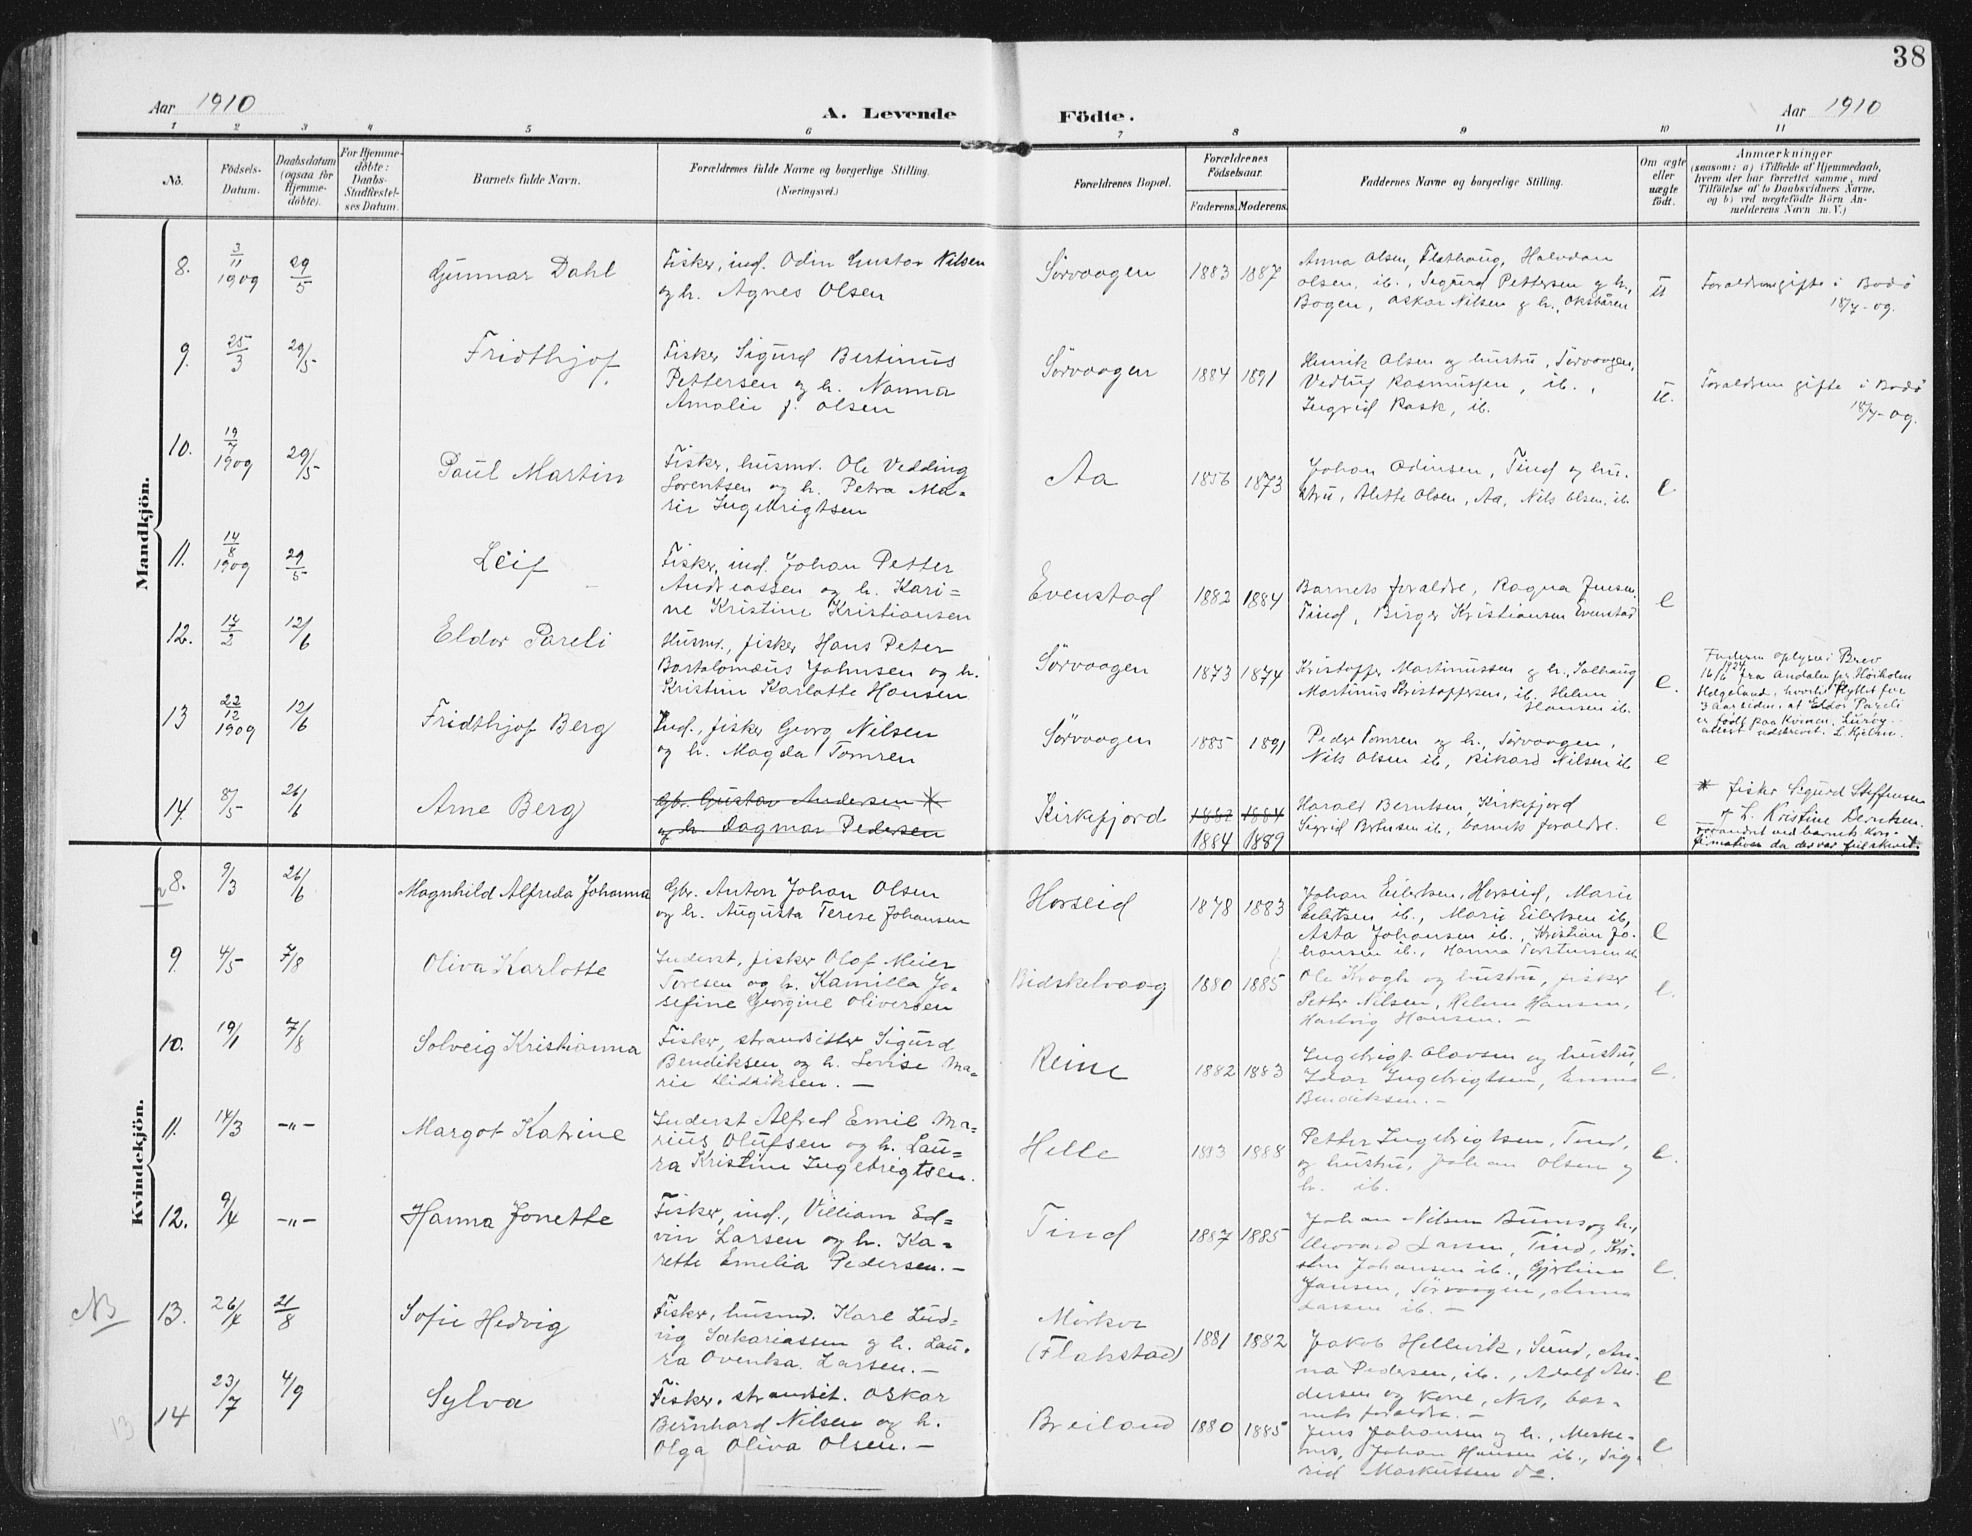 38
Aar 1910
A. Levende
Födte.
Aar 1910
1 2 3 4 5 6 7 8 9 10 11
No.
Födsels-
Datum.
Daabsdatum
(ogsaa for
Hjemme-
döbte).
For Hjemme-
döbte:
Daabs-
Stadfæstel-
ses Datum.
Barnets fulde Navn.
Forældrenes fulde Navne og borgerlige Stilling.
(Næringsvei.)
Forældrenes Bopæl.
Forældrenes
Födselsaar.
Faderens. Moderens.
Faddernes Navne og borgerlige Stilling.
Om ægte
eller
uægte
födt.
Anmærkninger
(saasom: a) i Tilfælde af Hjemmedaab,
hvem der har forrettet samme, med
Tilföielse af to Daabsvidners Navne,
og b) ved uægtefödte Börn An-
melderens Navn m. V.)
Mandkjön.
8.
3/11
1909
29/5
Gunnar Dahl
Fisker, ind. Odin Gustav Nilsen
og h. Agnes Olsen
Sörvaagen
1883 1887
Anna Olsen, Flathaug, Halvdan
Olsen, ib., Sigurd Pettersen og h.,
Bogen, Oskar Nilsen og h., Oksbåsen
u
Forældrene gifte i Bodö
18/7-09.
9.
25/3
29/5
Fridthjof
Fisker Sigurd Bertinus
Pettersen og h. Nanna
Amalie f. Olsen
Sörvaagen
1884 1891
Henrik Olsen og hustru, Sörvaagen,
Vedluf Rasmussen, ib.,
Ingrid Rask, ib.
u.
Forældrene gifte i Bodö
18/7-09.
10.
19/7
1909
29/5
Paul Martin
Fisker, husmd. Ole Vedding
Lorentsen og h. Petra Ma=
rie Ingebrigtsen
Aa
1856 1873
Johan Odinsen, Tind og hu-
stru, Alette Olsen, Aa, Nils Olsen, ib.
e
11.
14/8
1909
29/5
Leif
Fisker, ind. Johan Petter
Andreassen og h. Kari=
ne Kristine Kristiansen
Evenstad
1882 1884
Barnets forældre, Ragna Jensen,
Tind, Birger Kristiansen Evenstad
e
12.
17/2
12/6
Eldor Pareli
Husmd., fisker Hans Peter
Bartolomæus Johnsen og h.
Kristine Karlotte Hansen
Sörvaagen
1873 1874
Kristoffer Martinussen og h., Solhaug
Martinus Kristoffersen, ib. Helene
Hansen ib.
e.
Faderen oplyser i Brev
16/6 1924 fra Andalen pr Höiholm
Helgeland, hvortil flyttet for
3 Aar siden, at Eldor Pareli
er født paa Kvinen, Luröy.
attest udskrevet. L. Kjelm.
13
22/12
1909
12/6
Fridthjof Berg
Ind., fisker Georg Nilsen
og h. Magda Tomren
Sörvaagen
1885 1891
Peder Tomren og h., Sörvaagen,
Nils Olsen ib, Rikard Nilsen ib
e
14
8/5
26/6
Arne Berg
Gbr. Gustav Andersen *
og h. Dagmar Pedersen
Kirkefjord
1882 1884
1884 1889
Harald Berntsen, Kirkefjord
Sigrid Berntsen ib, barnets forældre.
e
* fisker Sigurd Steffensen
+ h. Kristine Berntsen.
Forandret ved barnets kon-
firmation da der var feilskrevet. *
Kvindekjön.
8.
9/3
26/6
Magnhild Alfreda Johanna
Gbr. Anton Johan Olsen
og h. Augusta Terese Johansen
Horseid
1878 1883
Johan Eilertsen, Horseid, Marie
Eilertsen ib., Marie Eilertsen ib,
Asta Johansen ib., Kristian Jo-
hansen ib., Hanna Torstensen ib
e
9.
4/5
7/8
Oliva Karlotte
Inderst, fisker Olaf Meier
Toresen og h. Kamilla Jo-
sefine Georgine Oliversen
Bidskelvaag
1880 1885
Ole Krogh og hustru, fisker
Petter Nilsen, Helene Hansen,
Hartvig Hansen. —
e.
10.
19/1
7/8
Solveig Kristianna
Fisker, strandsitter Sigurd
Bendiksen og h. Lovise Ma=
rie Didriksen. —
Reine
1882 1883
Ingebrigt Olavsen og hustru,
Idar Ingebrigtsen, Emma
Bendiksen. —
e.
11.
14/3
—"—
Margot Katrine
Inderst Alfred Emil Ma=
rius Olufsen og h. Lau=
ra Kristine Ingebrigtsen.
Helle
1883 1888
Petter Ingebrigtsen, Tind,
og hustru, Johan Olsen og
h. ib.
e.
12.
9/4
—"—
Hanna Jonette
Fisker, ind., Villiam Ed=
vin Larsen og h. Ka=
rette Emelia Pedersen. —
Tind
1887 1885
Johan Nilsen Bunes og h.,
Larsen, Tind, Kri-
stine Johansen ib., Gjertine
Jansen, Sörvaagen, Anna
Larsen ib. —
e.
NB
13.
26/4
21/8
Sofie Hedvig
Fisker, husmd. Karl Lud=
vig Sakariassen og h. Lau=
ra Ovenka Larsen. —
Mörkve
(Flakstad)
1881 1882
Jakob Hellevik, Sund, An-
na Pedersen, ib., Adolf An-
dersen og kone, Nes, bar-
nets forældre. —
e
13
14
23/7
4/9
Sylva
Fisker, strandsit. Oskar
Bernhard Nilsen og h.
Olga Oliva Olsen. —
Breiland
1880 1885
Jens Johansen og h., Moske-
nes, Johan Hansen ib., Sig-
rid Markussen do.
e